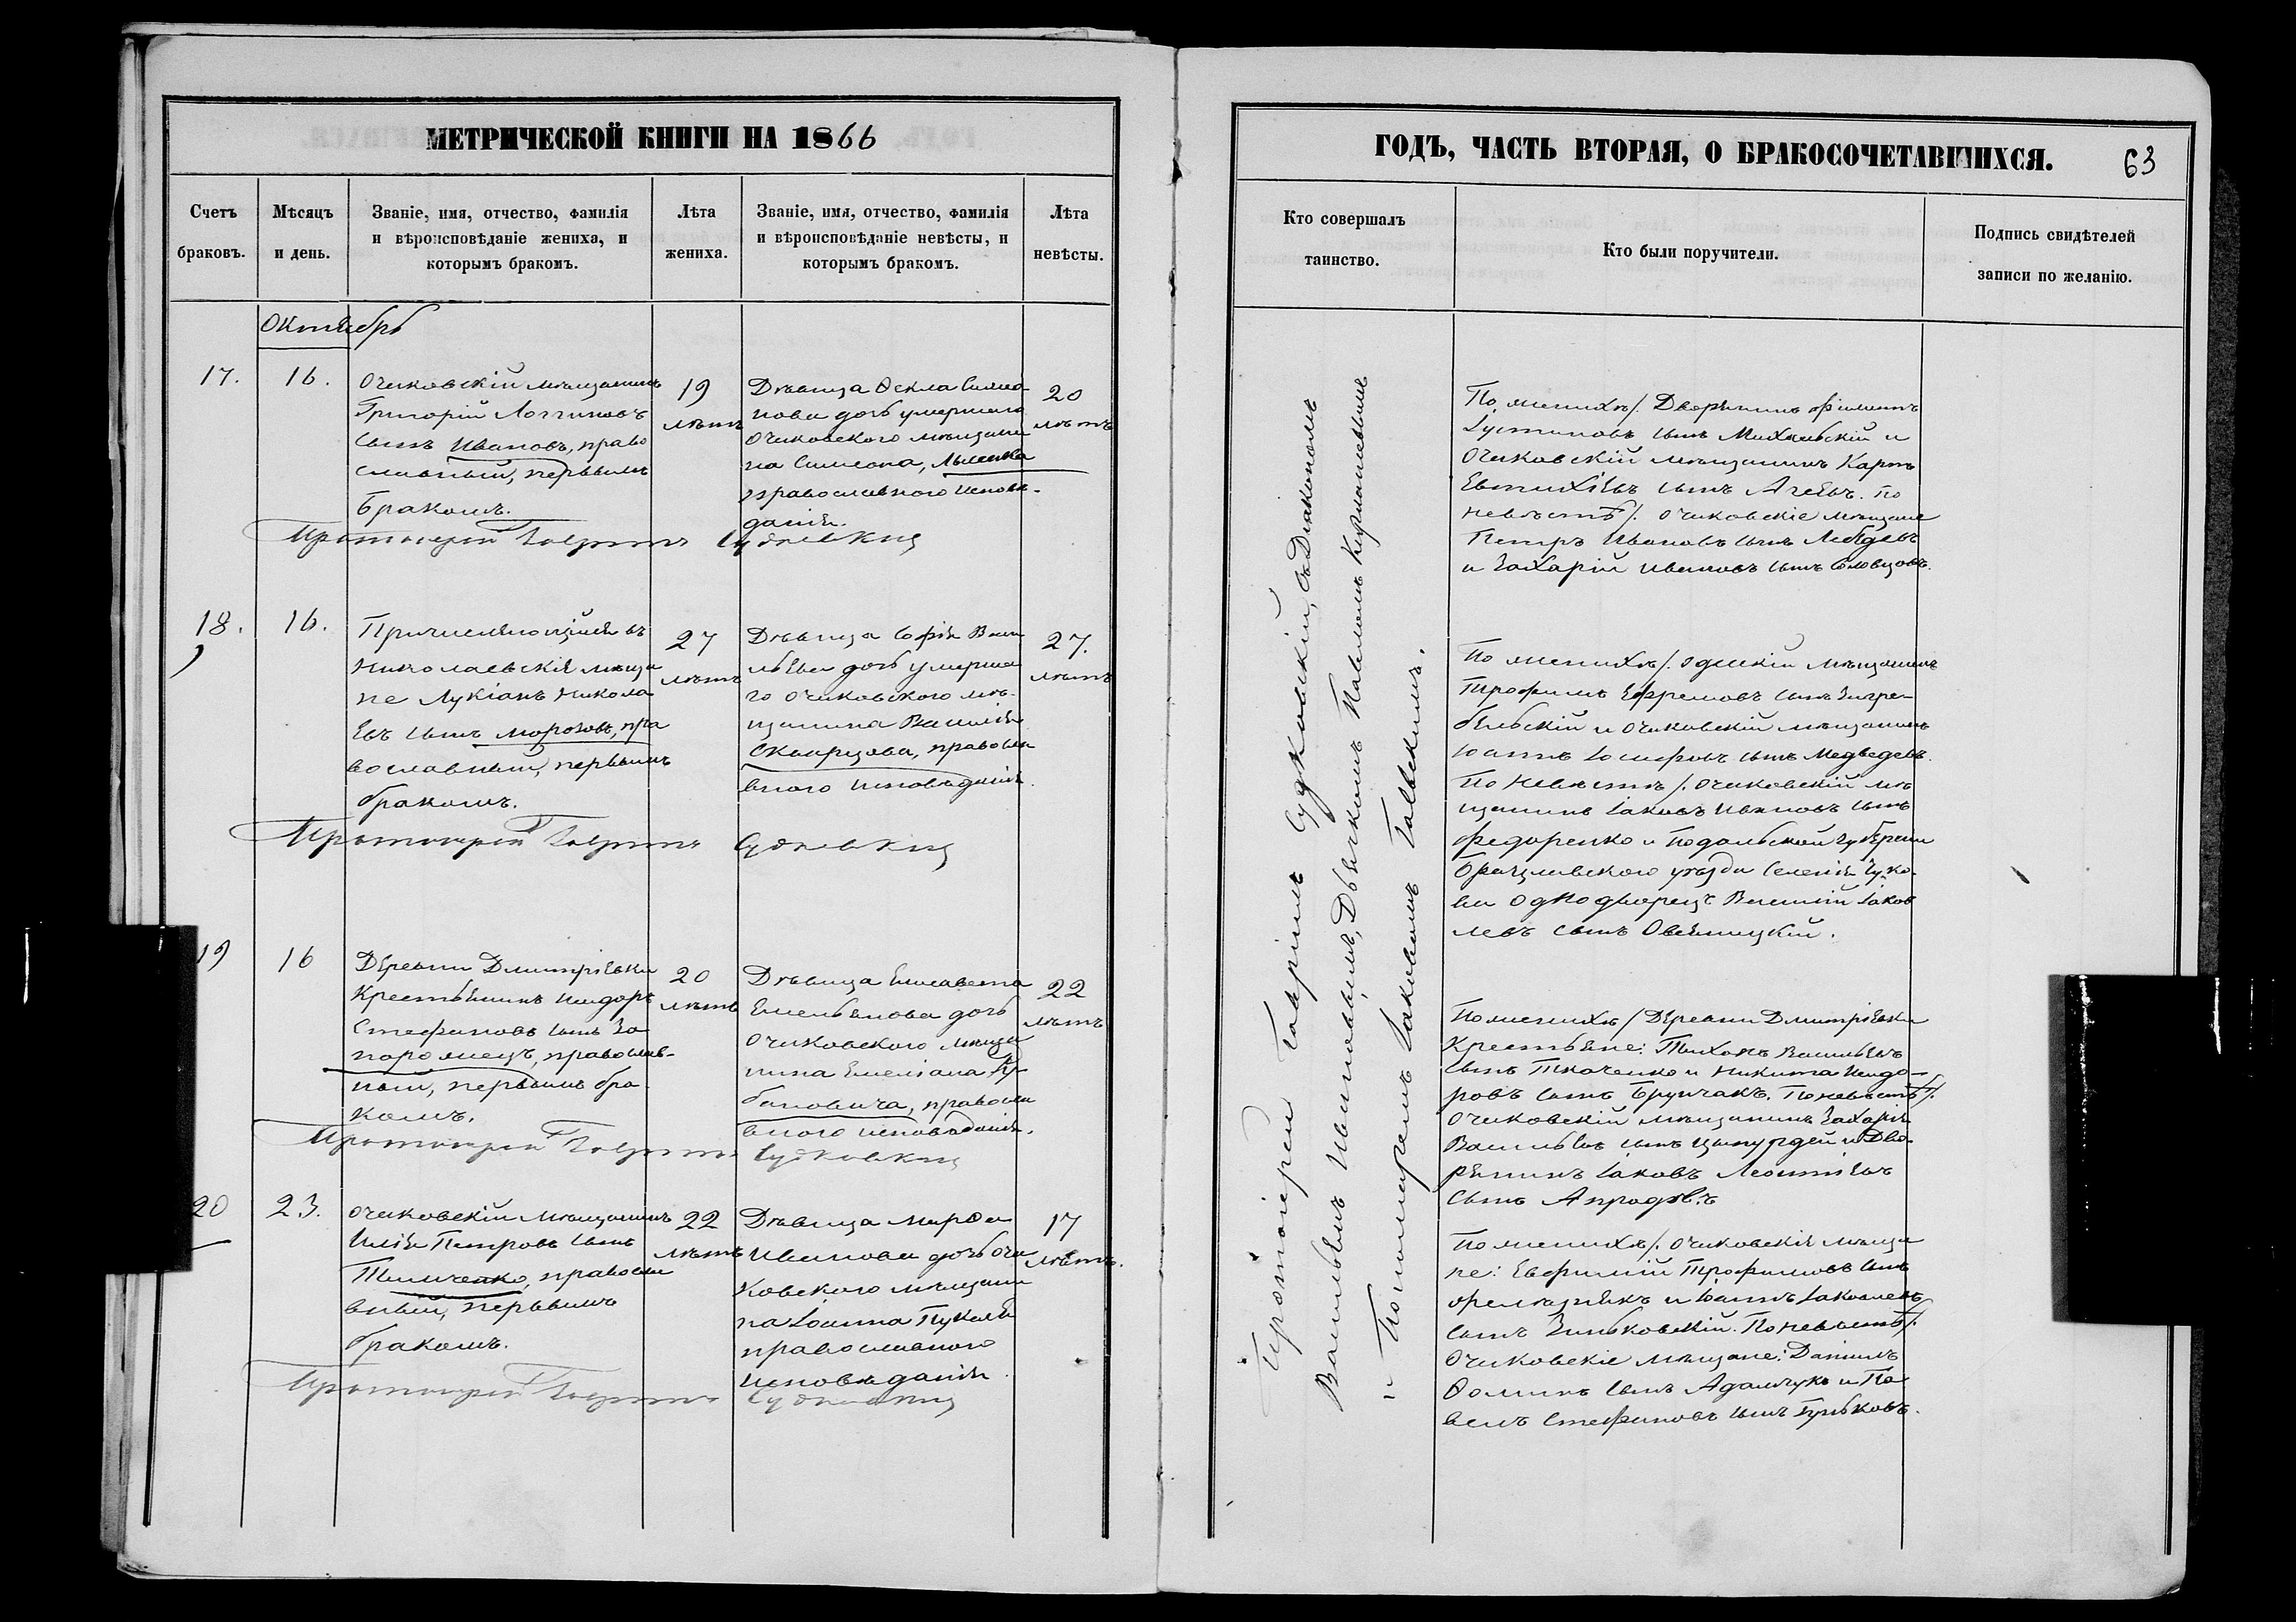 МЕТРИЧЕСКОЙ КНИГИ НА 1866
Счетъ браковъ.
Мѣсяцъ и день.
Званіе, имя, отчество, фамилія
и вѣроисповѣданіе жениха, и
которымъ бракомъ.
Лѣта жениха.
Званіе, имя, отчество, фамилія
и вѣроисповѣданіе невѣсты, и
которымъ бракомъ.
Лѣта невѣсты.
Октябрь
17.
16.
Очаковскій мѣщанинъ
Григорій Логгиновъ
сынъ Ивановъ, право
славный, первымъ
бракомъ.
19
лѣтъ
Дѣвица Ѳекла Симео-
нова дочь умершаго
Очаковского мѣщани
на Симеона,
православного исповѣ-
данія.
20
лѣтъ
Протоіерей Гавріилъ Судковскій
18.
16.
Причисляющійся въ
Николаевскіе мѣща
не Лукіанъ Никола
евъ сынъ Морозовъ, пра
вославный, первымъ
бракомъ.
27
лѣтъ
Дѣвица Софія Васи
льева дочь умерша
го Очаковского мѣ-
щанина Василія
Скварцова, православ
вного исповѣданія.
27.
лѣтъ
Протоіерей Гавріилъ Судковскій
19
16
Деревни Дмитріевки
Крестьянинъ Исидоръ
Стефановъ сынъ За
порожецъ, православ-
ный, первымъ бра
комъ.
20
лѣтъ
Дѣвица Елисавета
Емельянова дочь
Очаковского мѣща
нина Емеліана Ур
бановича, правосла
вного исповѣданія.
22
лѣтъ
Протоіерей Гавріилъ Судковскій
20
23.
Очаковскій мѣщанинъ
Илія Петровъ сынъ
Тимченко, правосла
вный, первымъ
бракомъ.
22
лѣтъ
Дѣвица Марѳа
Иванова дочь Оча
ковского мѣщани
на Іоанна Пукаля
православного
исповѣданія.
17
лѣтъ.
Протоіерей Гавріилъ Судковскій
ГОДЪ, ЧАСТЬ ВТОРАЯ, О БРАКОСОЧЕТАВШИХСЯ.
63
Кто совершалъ
таинство.
Кто были поручители.
Подпись свидѣтелей
записи по желанію.
Протоіерей Гавріилъ Судковскій, съ Діакономъ
Васильемъ Дьячкомъ Павломъ
и Пономаремъ Іаковомъ Галевскимъ.
По женихѣ/. Дворянинъ Филиппъ
Іустиновъ сынъ Михальскій и
Очаковскій мѣщанинъ Карпъ
Евтихіевъ сынъ Агеевъ. По
невѣстѣ/. Очаковскіе мѣщане
Петръ Ивановъ сынъ Лебедевъ
и Захарій Ивановъ сынъ Соловцовъ.
По женихѣ/. Одесскій мѣщанинъ
Трофимъ Ефремовъ сынъ Загре-
бельскій и Очаковскій мѣщанинъ
Іоаннъ Іосифовъ сынъ Медведевъ.
По невѣстѣ/. Очаковскій мѣ
щанинъ Іаковъ Ивановъ сынъ
Федоренко и Подольской губерніи
Брацлавского уѣзда Селенія Чуко-
ва Однодворецъ Василій Іаков
левъ сынъ Овсяницкій.
По женихѣ/ Деревни Дмитріевки
Крестьяне: Тихонъ Васильевъ
сынъ Ткаченко и Никита Исидо-
ровъ сынъ Бурчакъ. По невѣстѣ/.
Очаковскій мѣщанинъ Захарій
Васильевъ сынъ и Дво-
рянинъ Іаковъ Леонтіевъ
сынъ
По женихѣ/. Очаковскіе мѣща
не: Евфимій Трофимовъ сынъ
и Іоаннъ Іаковлевъ
сынъ Зиньковскій. По невѣстѣ/.
Очаковскіе мѣщане: Даніилъ
Ѳоминъ сынъ Адамчукъ и Па
велъ Стефановъ сынъ